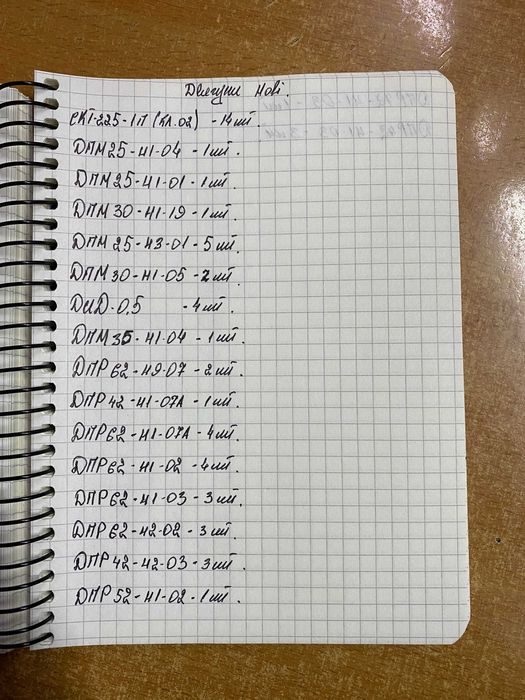 Двигуни нові.
СКТ-225-1П (кл.02) - 14 шт.
ДПМ 25-Н1-04 - 1 шт.
ДПМ 25-Н1-01 - 1 шт.
ДПМ 30-Н1-19 - 1 шт.
ДПМ 25-Н3-01 - 5 шт.
ДПМ 30-Н1-05 - 2 шт.
ДИД-0,5 - 4 шт.
ДПМ 35-Н1-04 - 1 шт.
ДПР 62-Н9-07 - 2 шт.
ДПР 42-Н1-07А - 1 шт.
ДПР 62-Н1-07А - 4 шт.
ДПР 62-Н1-02 - 4 шт.
ДПР 62-Н1-03 - 3 шт.
ДПР 62-Н2-02 - 3 шт.
ДПР 42-Н2-03 - 3 шт.
ДПР 52-Н1-02 - 1 шт.